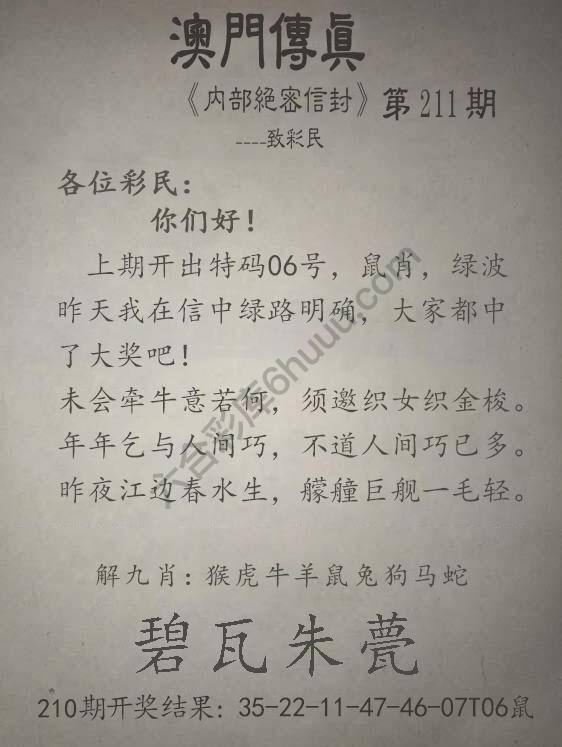 澳門傳眞
《内部絕密信封》第211期
----致彩民
各位彩民：
你们好！
上期开出特码06号，鼠肖，绿波
昨天我在信中绿路明确，大家都中
了大奖吧！
未会牵牛意若何，须邀织女织金梭。
年年乞与人间巧，不道人间巧已多。
昨夜江边春水生，艨艟巨舰一毛轻。
解九肖：猴虎牛羊鼠兔狗马蛇
碧瓦朱甍
210期开奖结果：35-22-11-47-46-07T06鼠
六合彩库6huuu.com